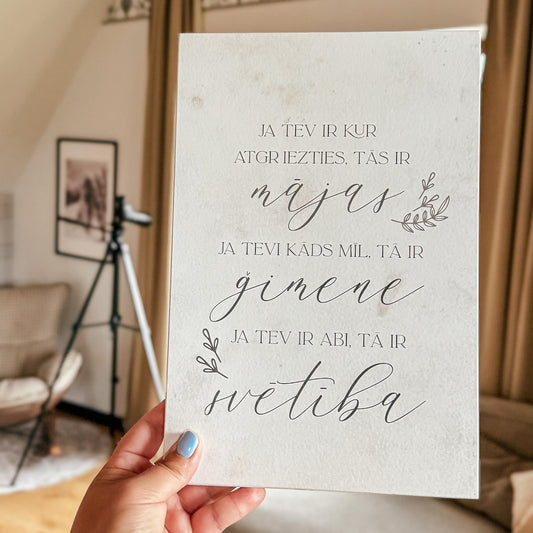 JA TEV IR KUR
ATGRIEZTIES, TĀS IR
mājas
JA TEVI KĀDS MĪL, TĀ IR
ģimene
JA TEV IR ABI, TĀ IR
svētība